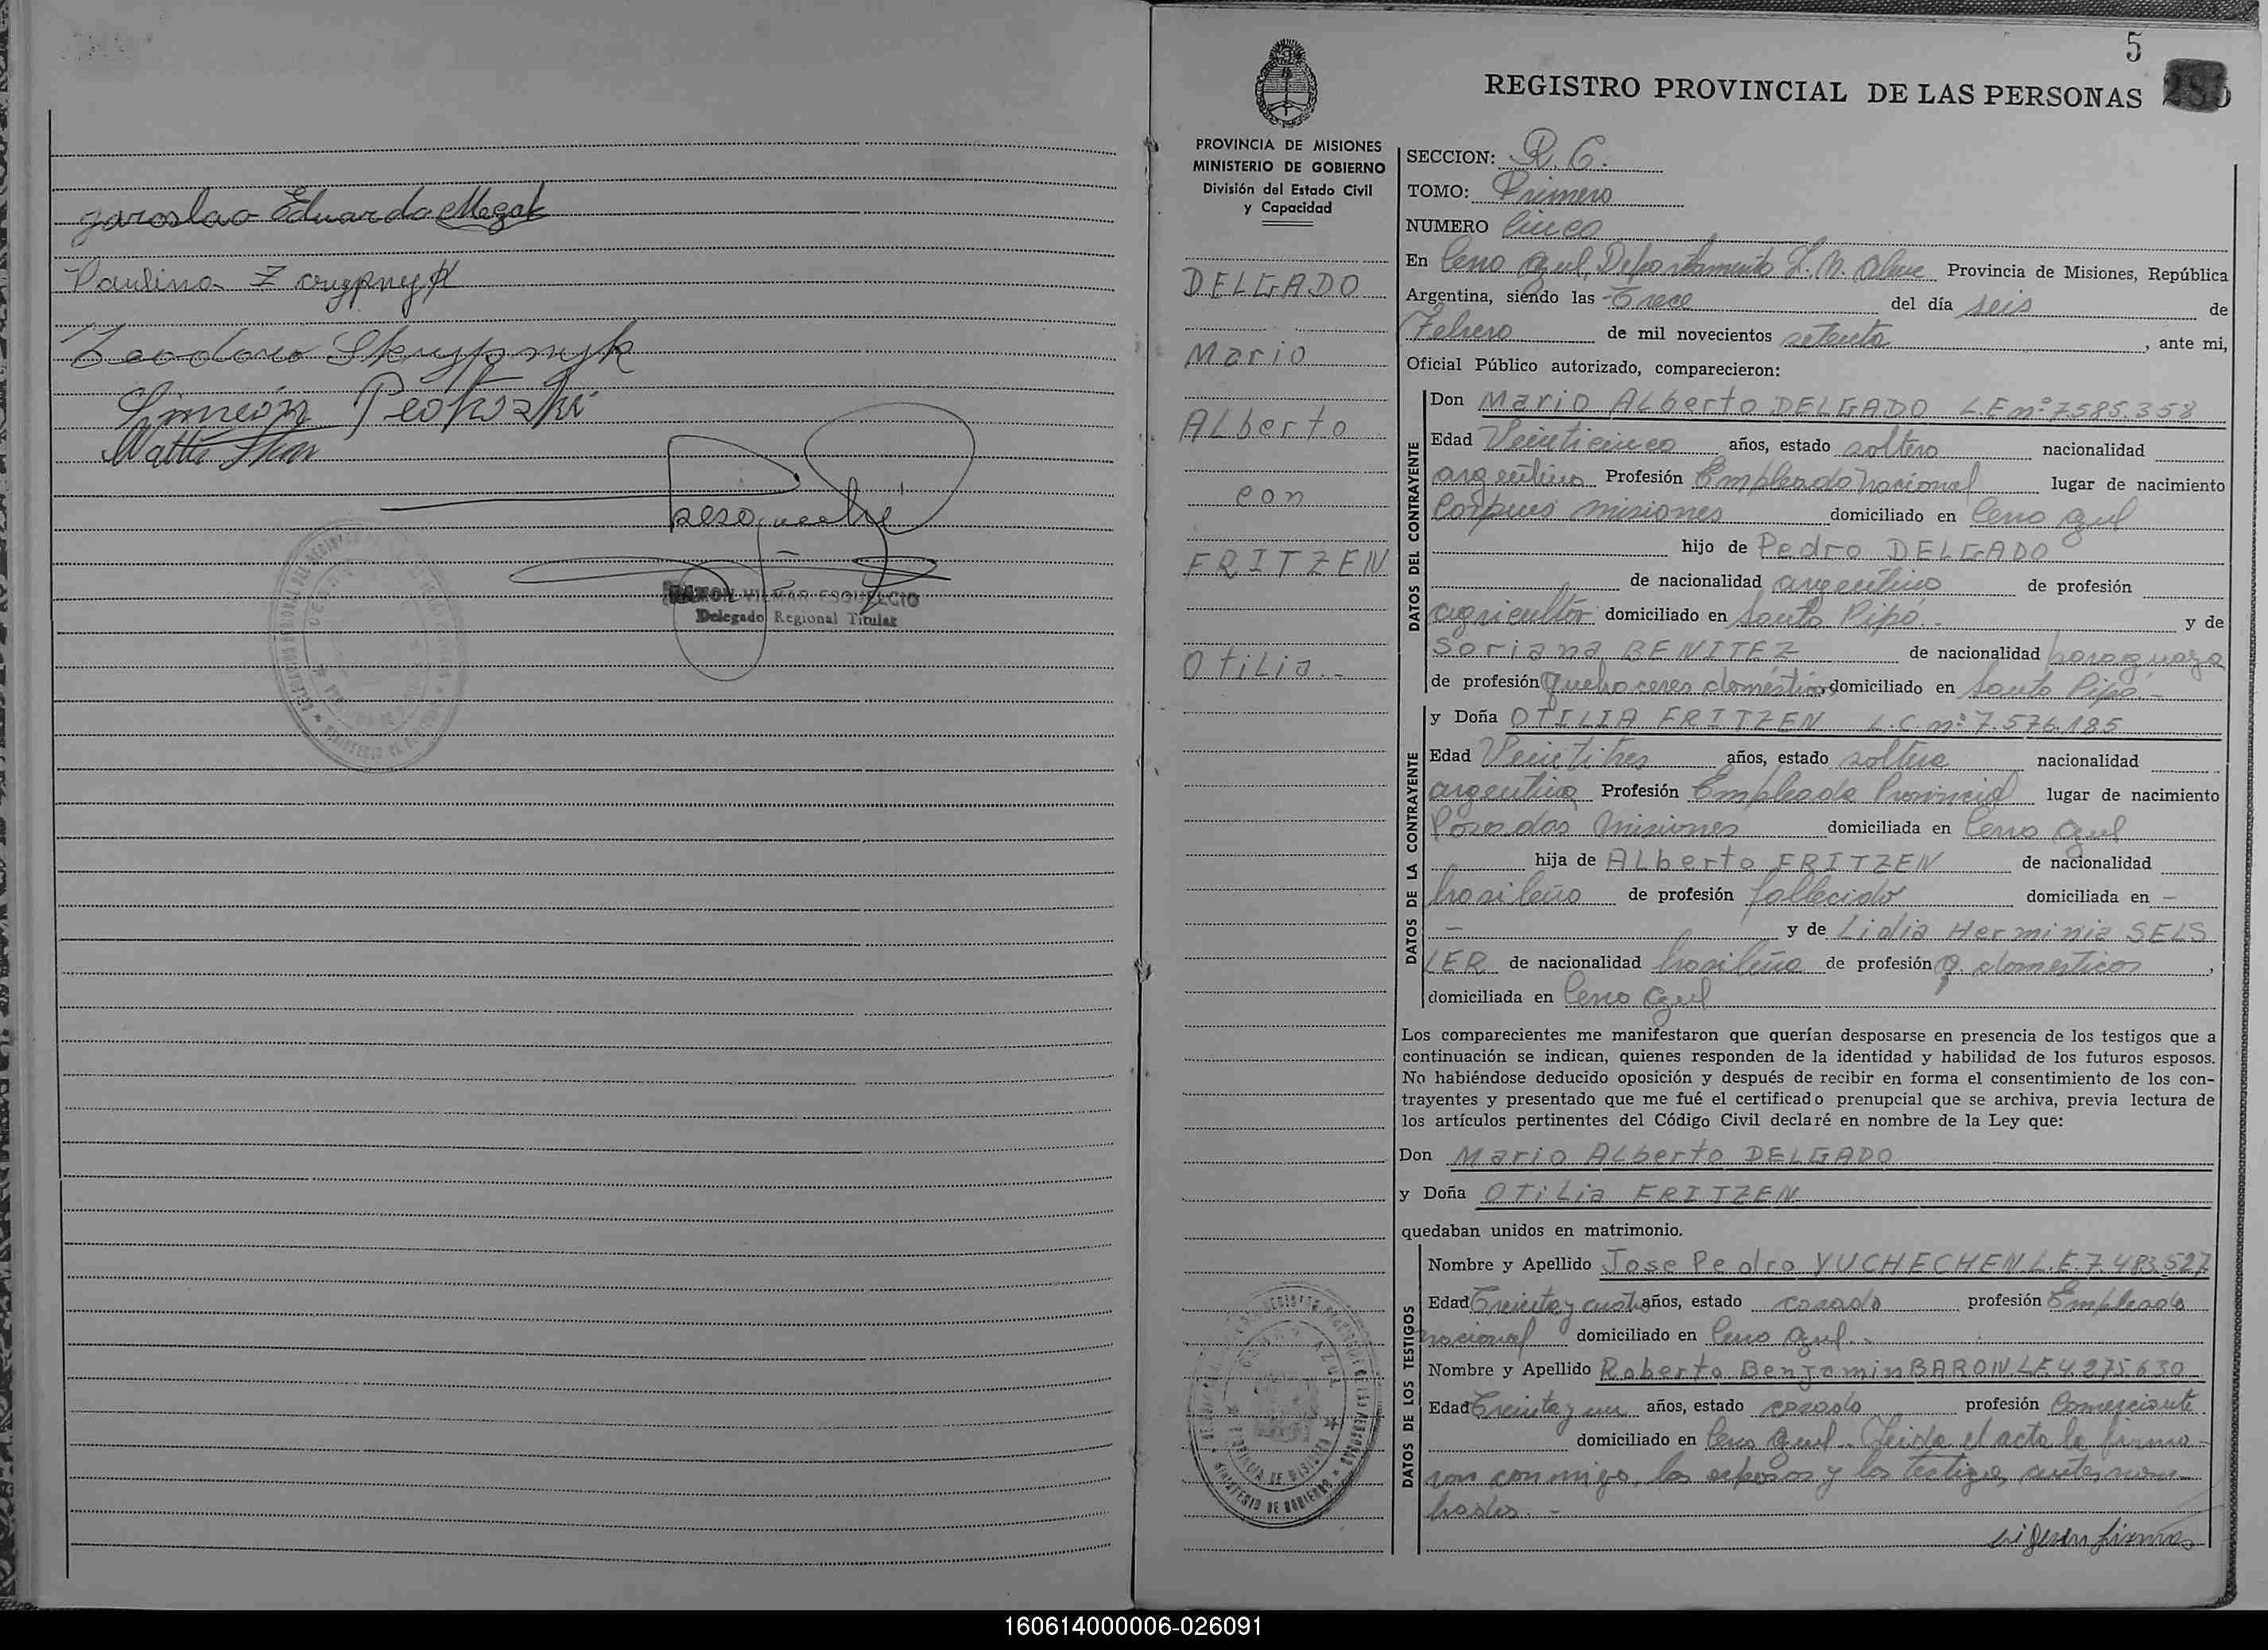 Jaroslao Eduardo
Paulina
Teodoro Skrypnyk
Simeón
RAMON VILMAR ESQUELCIO
Delegado Regional Titular
5
REGISTRO PROVINCIAL DE LAS PERSONAS
285
PROVINCIA DE MISIONES
MINISTERIO DE GOBIERNO
División del Estado Civil
y Capacidad
DELGADO
Mario
Alberto
con
FRITZEN
Otilia.-
SECCION: R. C.
TOMO: Primero
NUMERO Cinco
En Cerro Azul, Departamento L. N. Alem Provincia de Misiones, República
Argentina, siendo las Trece del día seis de
Febrero de mil novecientos setenta, ante mi,
Oficial Público autorizado, comparecieron:
DATOS DEL CONTRAYENTE
Don Mario Alberto DELGADO L.E nº 7.585.358
Edad Veinticinco años, estado soltero nacionalidad
argentino Profesión Empleado Nacional lugar de nacimiento
Corpus Misiones domiciliado en Cerro Azul
hijo de Pedro DELGADO
de nacionalidad argentino de profesión
agricultor domiciliado en Santo Pipó.- y de
Soriana BENITEZ de nacionalidad paraguaya
de profesión Quehaceres domésticos domiciliado en Santo Pipó-
DATOS DE LA CONTRAYENTE
y Doña OTILIA FRITZEN L.C. nº 7.576.185
Edad Veintitres años, estado soltera nacionalidad
argentina Profesión Empleada Provincial lugar de nacimiento
Posadas Misiones domiciliada en Cerro Azul
hija de Alberto FRITZEN de nacionalidad
brasileño de profesión fallecido domiciliada en -
- y de Lidia Herminia SELS
LER de nacionalidad brasileña de profesión Q. domesticos,
domiciliada en Cerro Azul
Los comparecientes me manifestaron que querían desposarse en presencia de los testigos que a
continuación se indican, quienes responden de la identidad y habilidad de los futuros esposos.
No habiéndose deducido oposición y después de recibir en forma el consentimiento de los con-
trayentes y presentado que me fué el certificado prenupcial que se archiva, previa lectura de
los artículos pertinentes del Código Civil declaré en nombre de la Ley que:
Don Mario Alberto DELGADO
y Doña Otilia FRITZEN
quedaban unidos en matrimonio.
DATOS DE LOS TESTIGOS
Nombre y Apellido Jose Pedro YUCHECHEN L.E. 7.483.527
Edad Treinta y cuatro años, estado casado profesión Empleado
nacional domiciliado en Cerro Azul.-
Nombre y Apellido Roberto Benjamin BARON L.E. 4.275.630
Edad Treinta y un años, estado casado profesión Comerciante
domiciliado en Cerro Azul.- Leida el acta la firma-
ron conmigo, los esposos y los testigos antes nom-
brados.-
siguen firmas
160614000006-026091